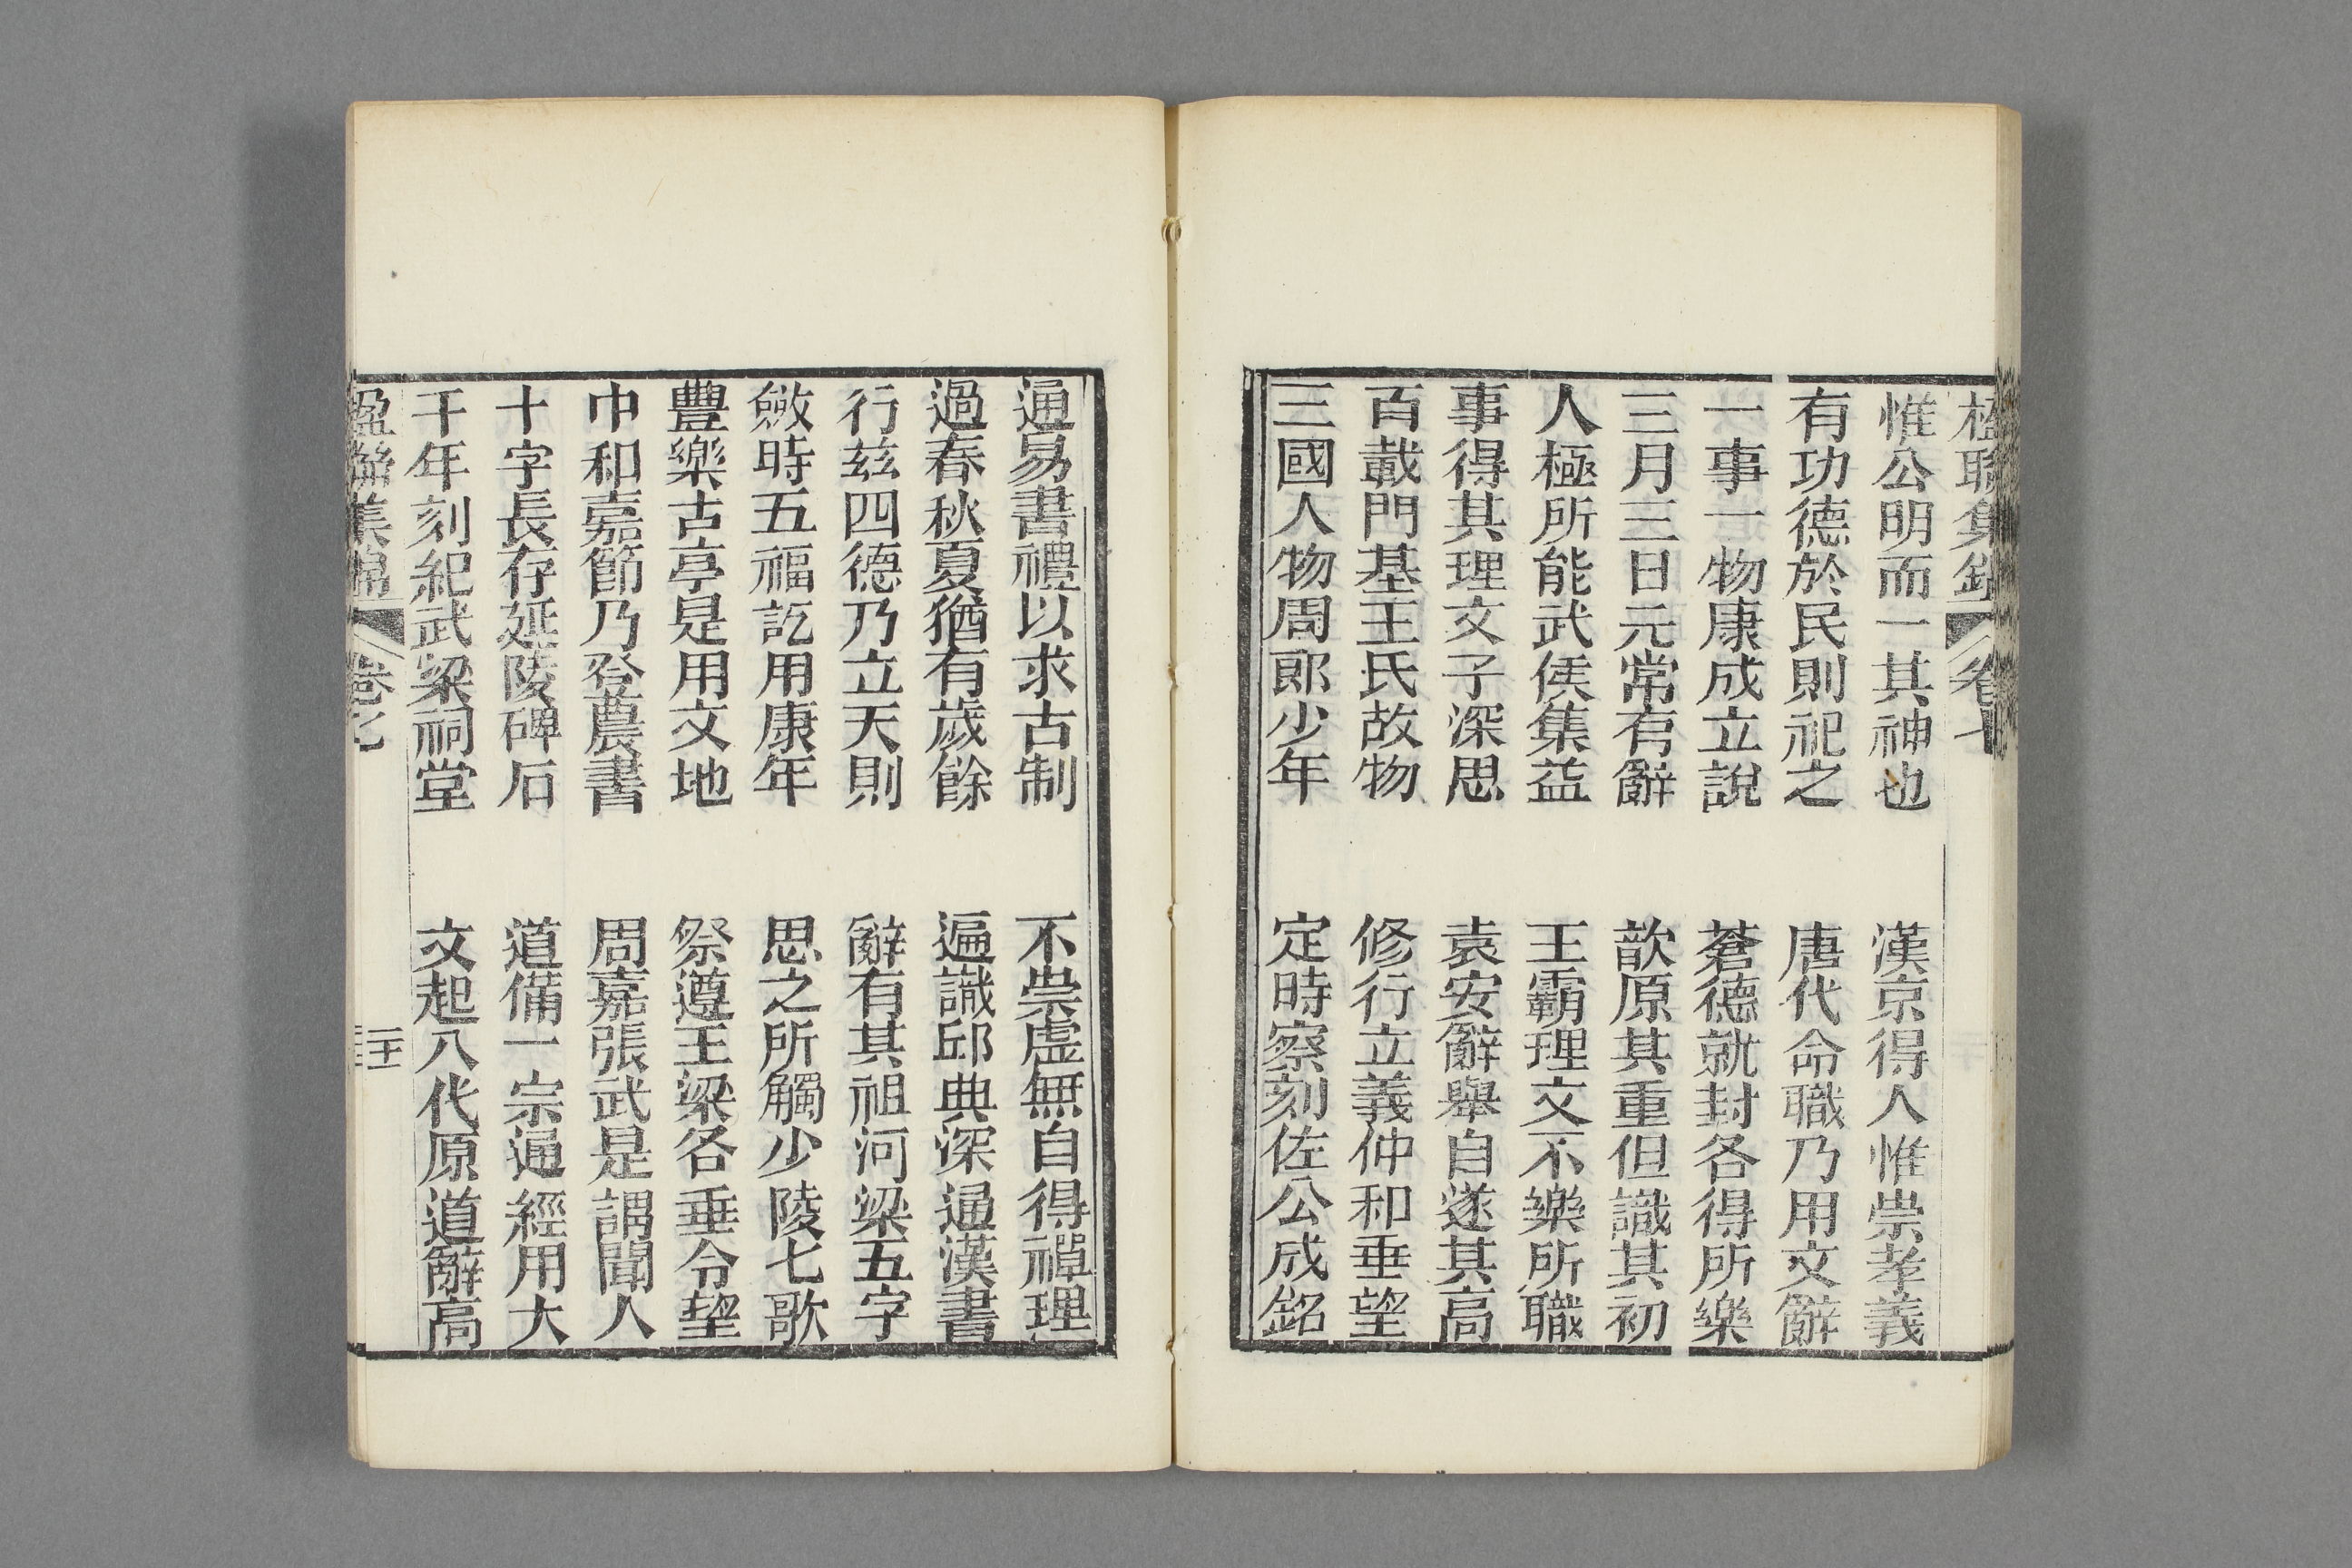 楹聯集錦 卷七
惟公明而一其神也 漢京得人惟崇孝義
有功德於民則祀之 唐代命職乃用文辭
一事一物康成立說 蒼德就封各得所樂
三月三日元常有辭 歆原其重但識其初
人極所能武侯集益 王霸理文不樂所職
事得其理文子深思 袁安辭舉自遂其高
百載門基王氏故物 修行立義仲和垂望
三國人物周郎少年 定時察刻佐公成銘
通易書禮以求古制 不祟虛無自得禪理
過春秋夏猶有歲餘 遍識邱典深通漢書
行茲四德乃立天則 辭有其祖河梁五字
斂時五福訖用康年 思之所觸少陵七歌
豐樂古亭是用文地 祭遵王梁各垂令望
中和嘉節乃登農書 周嘉張武是謂聞人
十字長存延陵碑石 道備一宗通經用大
千年刻紀武梁祠堂 文起八代原道辭高
楹聯集錦 卷七